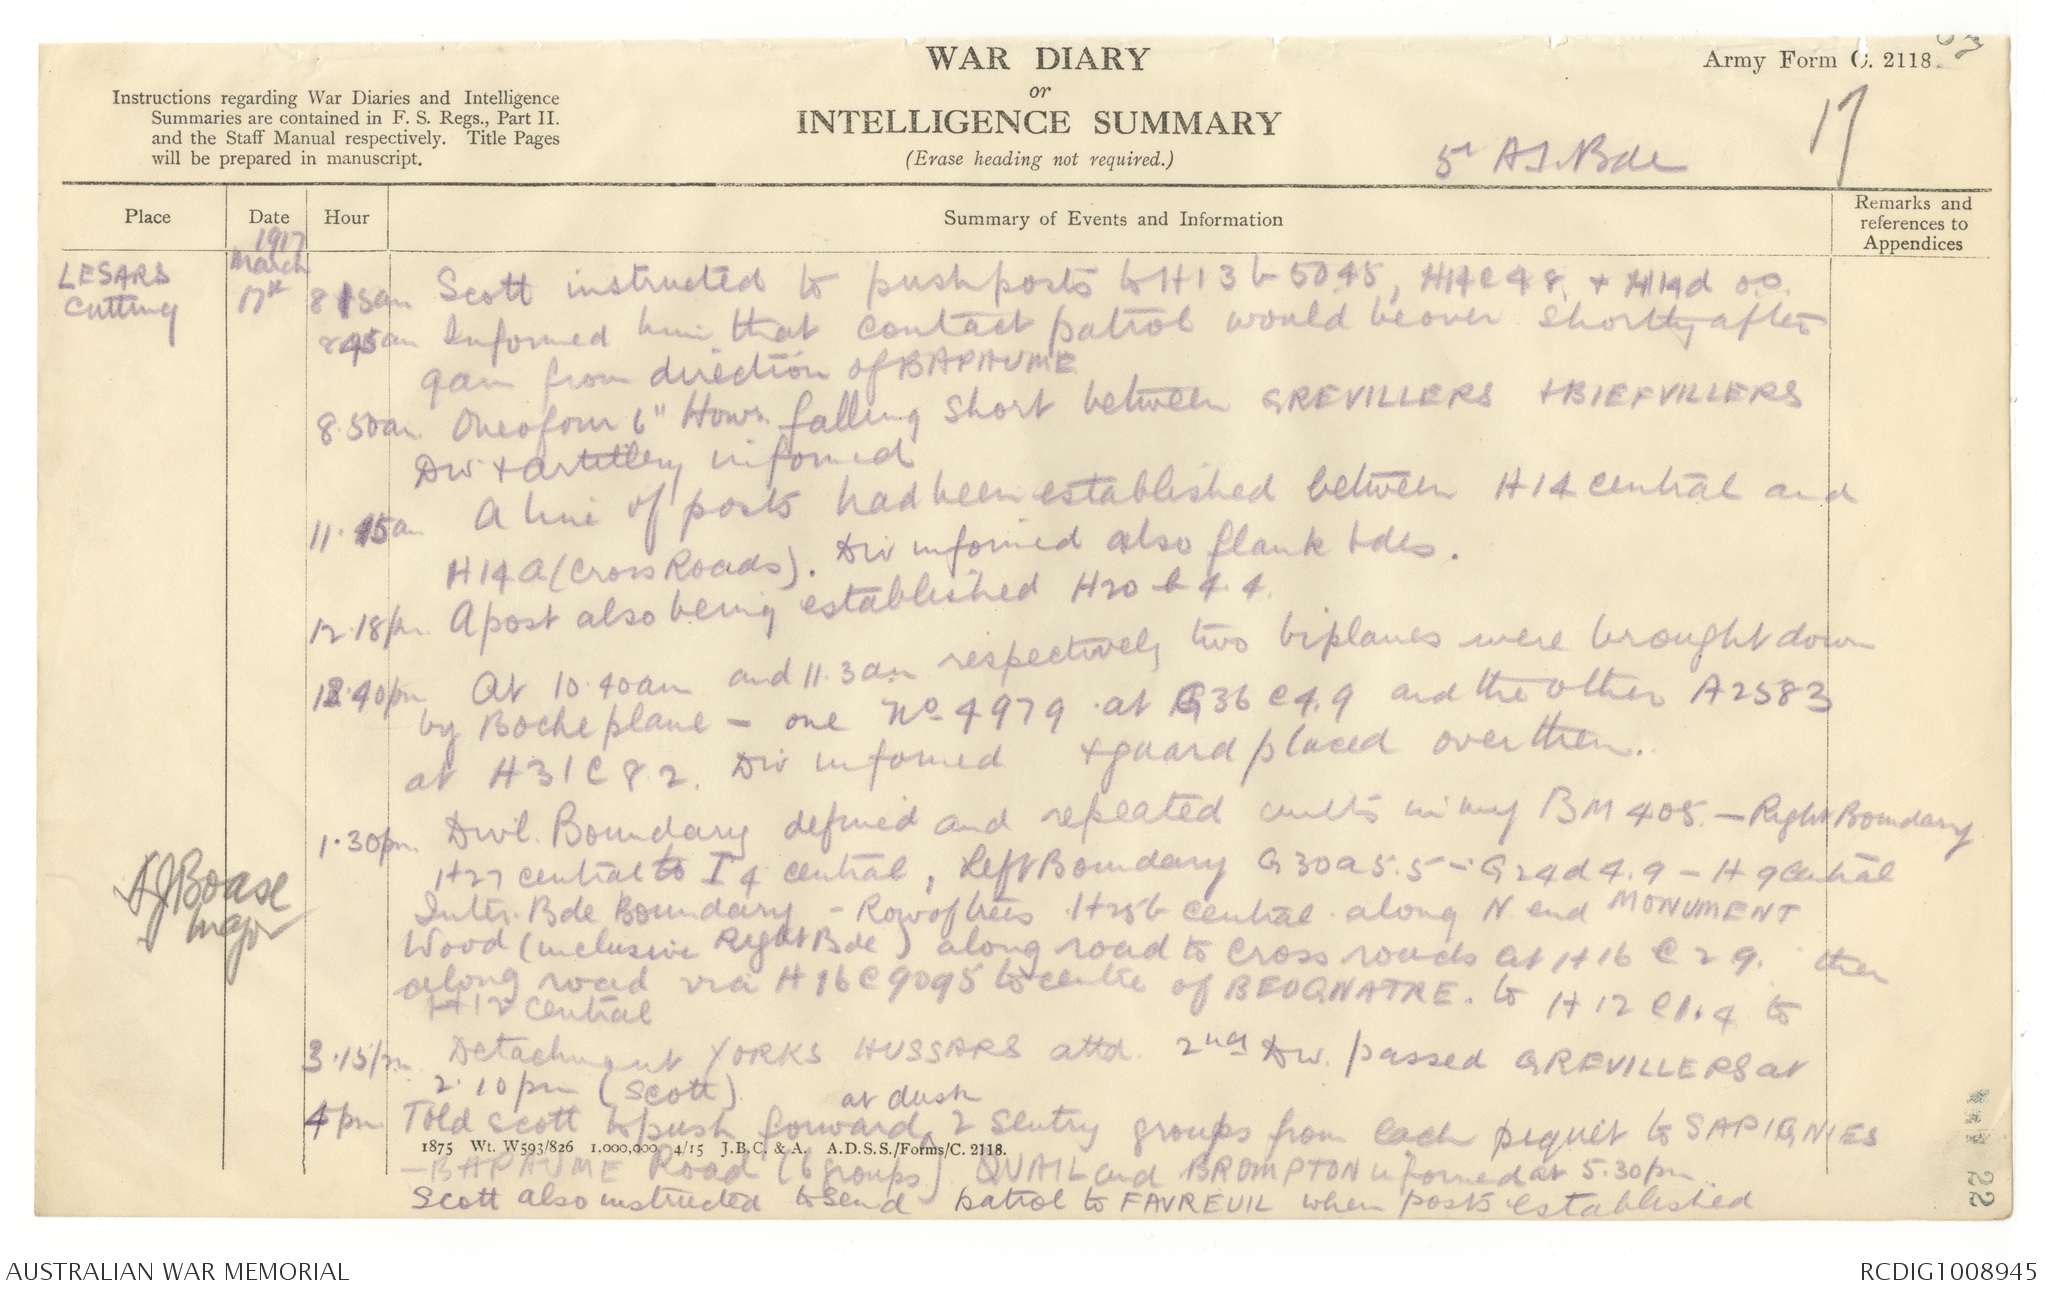 WAR DIARY
or
INTELLIGENCE SUMMARY
(Erase heading not required.)
Army Form C. 2118.
Instructions regarding War Diaries and Intelligence
Summaries are contained in F. S. Regs., Part II.
and the Staff Manual respectively. Title Pages
will be prepared in manuscript.
17
5th A.I. Bde
Place
Date
Hour
Summary of Events and Information
Remarks and
references to
Appendices
1917
March
LESARS
Cutting
17th
8 15am Scott instructed to push posts to H13 b 5045, H14C48 + H14d 0.0.
8.45am Informed him that contact patrol would be over shortly after
9am from direction of BAPAUME
8.50am One of our 6" Hows. falling short between GREVILLERS + BIEFVILLERS
Div + artillery informed
11.15am A line of posts had been established between H14 central and
H14A (Cross Roads). Div informed also flank bdes.
12.18pm A post also being established H20 b 4.4.
12.40pm At 10.40am and 11.3am respectively two biplanes were brought down
by Boche plane - one No 4979 at G36 C4.9 and the other A2583
at H31C 8.2. Div informed + guard placed over them.
1.30pm Divl. Boundary defined and repeated units in my BM 405. - Right Boundary
H27 central to I 4 central, Left Boundary G30a5.5 - G24d4.9 - H9 central
Inter. Bde Boundary - Row of trees H25b central along N end MONUMENT
Wood (inclusive Right Bde) along road to cross roads at H16 C 2 9. then
along road via H16C9095 to centre of BEUGNATRE. to H12 C1.4 to
H12 central
3.15pm Detachment YORKS HUSSARS attd. 2nd Div. passed GREVILLERS at
2.10pm (Scott)
at dusk
4pm Told Scott to push forward 2 sentry groups from each piquet to SAPIGNIES
1875 Wt. W593/826 1,000,000 4/15 J.B.C. & A. A.D.S.S./Forms/C. 2118.
- BAPAUME Road (6 groups) QUAIL and BROMPTON informed at 5.30pm
Scott also instructed to send patrol to FAVREUIL when posts established
AJBoase
Major
22
AUSTRALIAN WAR MEMORIAL
RCDIG1008945